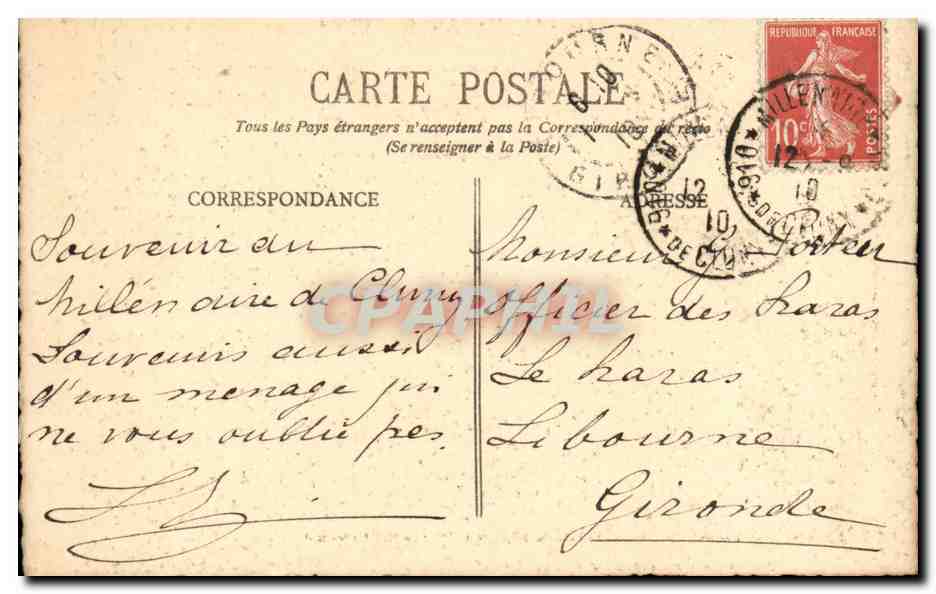 CARTE POSTALE
Tous les Pays étrangers n'acceptent pas la Correspondance au recto
(Se renseigner à la Poste)
CORRESPONDANCE
ADRESSE
REPUBLIQUE FRANÇAISE
10c
POSTES
MILLENAIRE
* 910 * DE CLUNY *
12
10
910 *
* DE CLUNY
12
10
GIR
Souvenir du
Millénaire de Cluny
Souvenirs aussi
d'un menage qui
ne vous oublie pas
Monsieur
officier des haras
Le haras
Libourne
Gironde
CPAPHIL